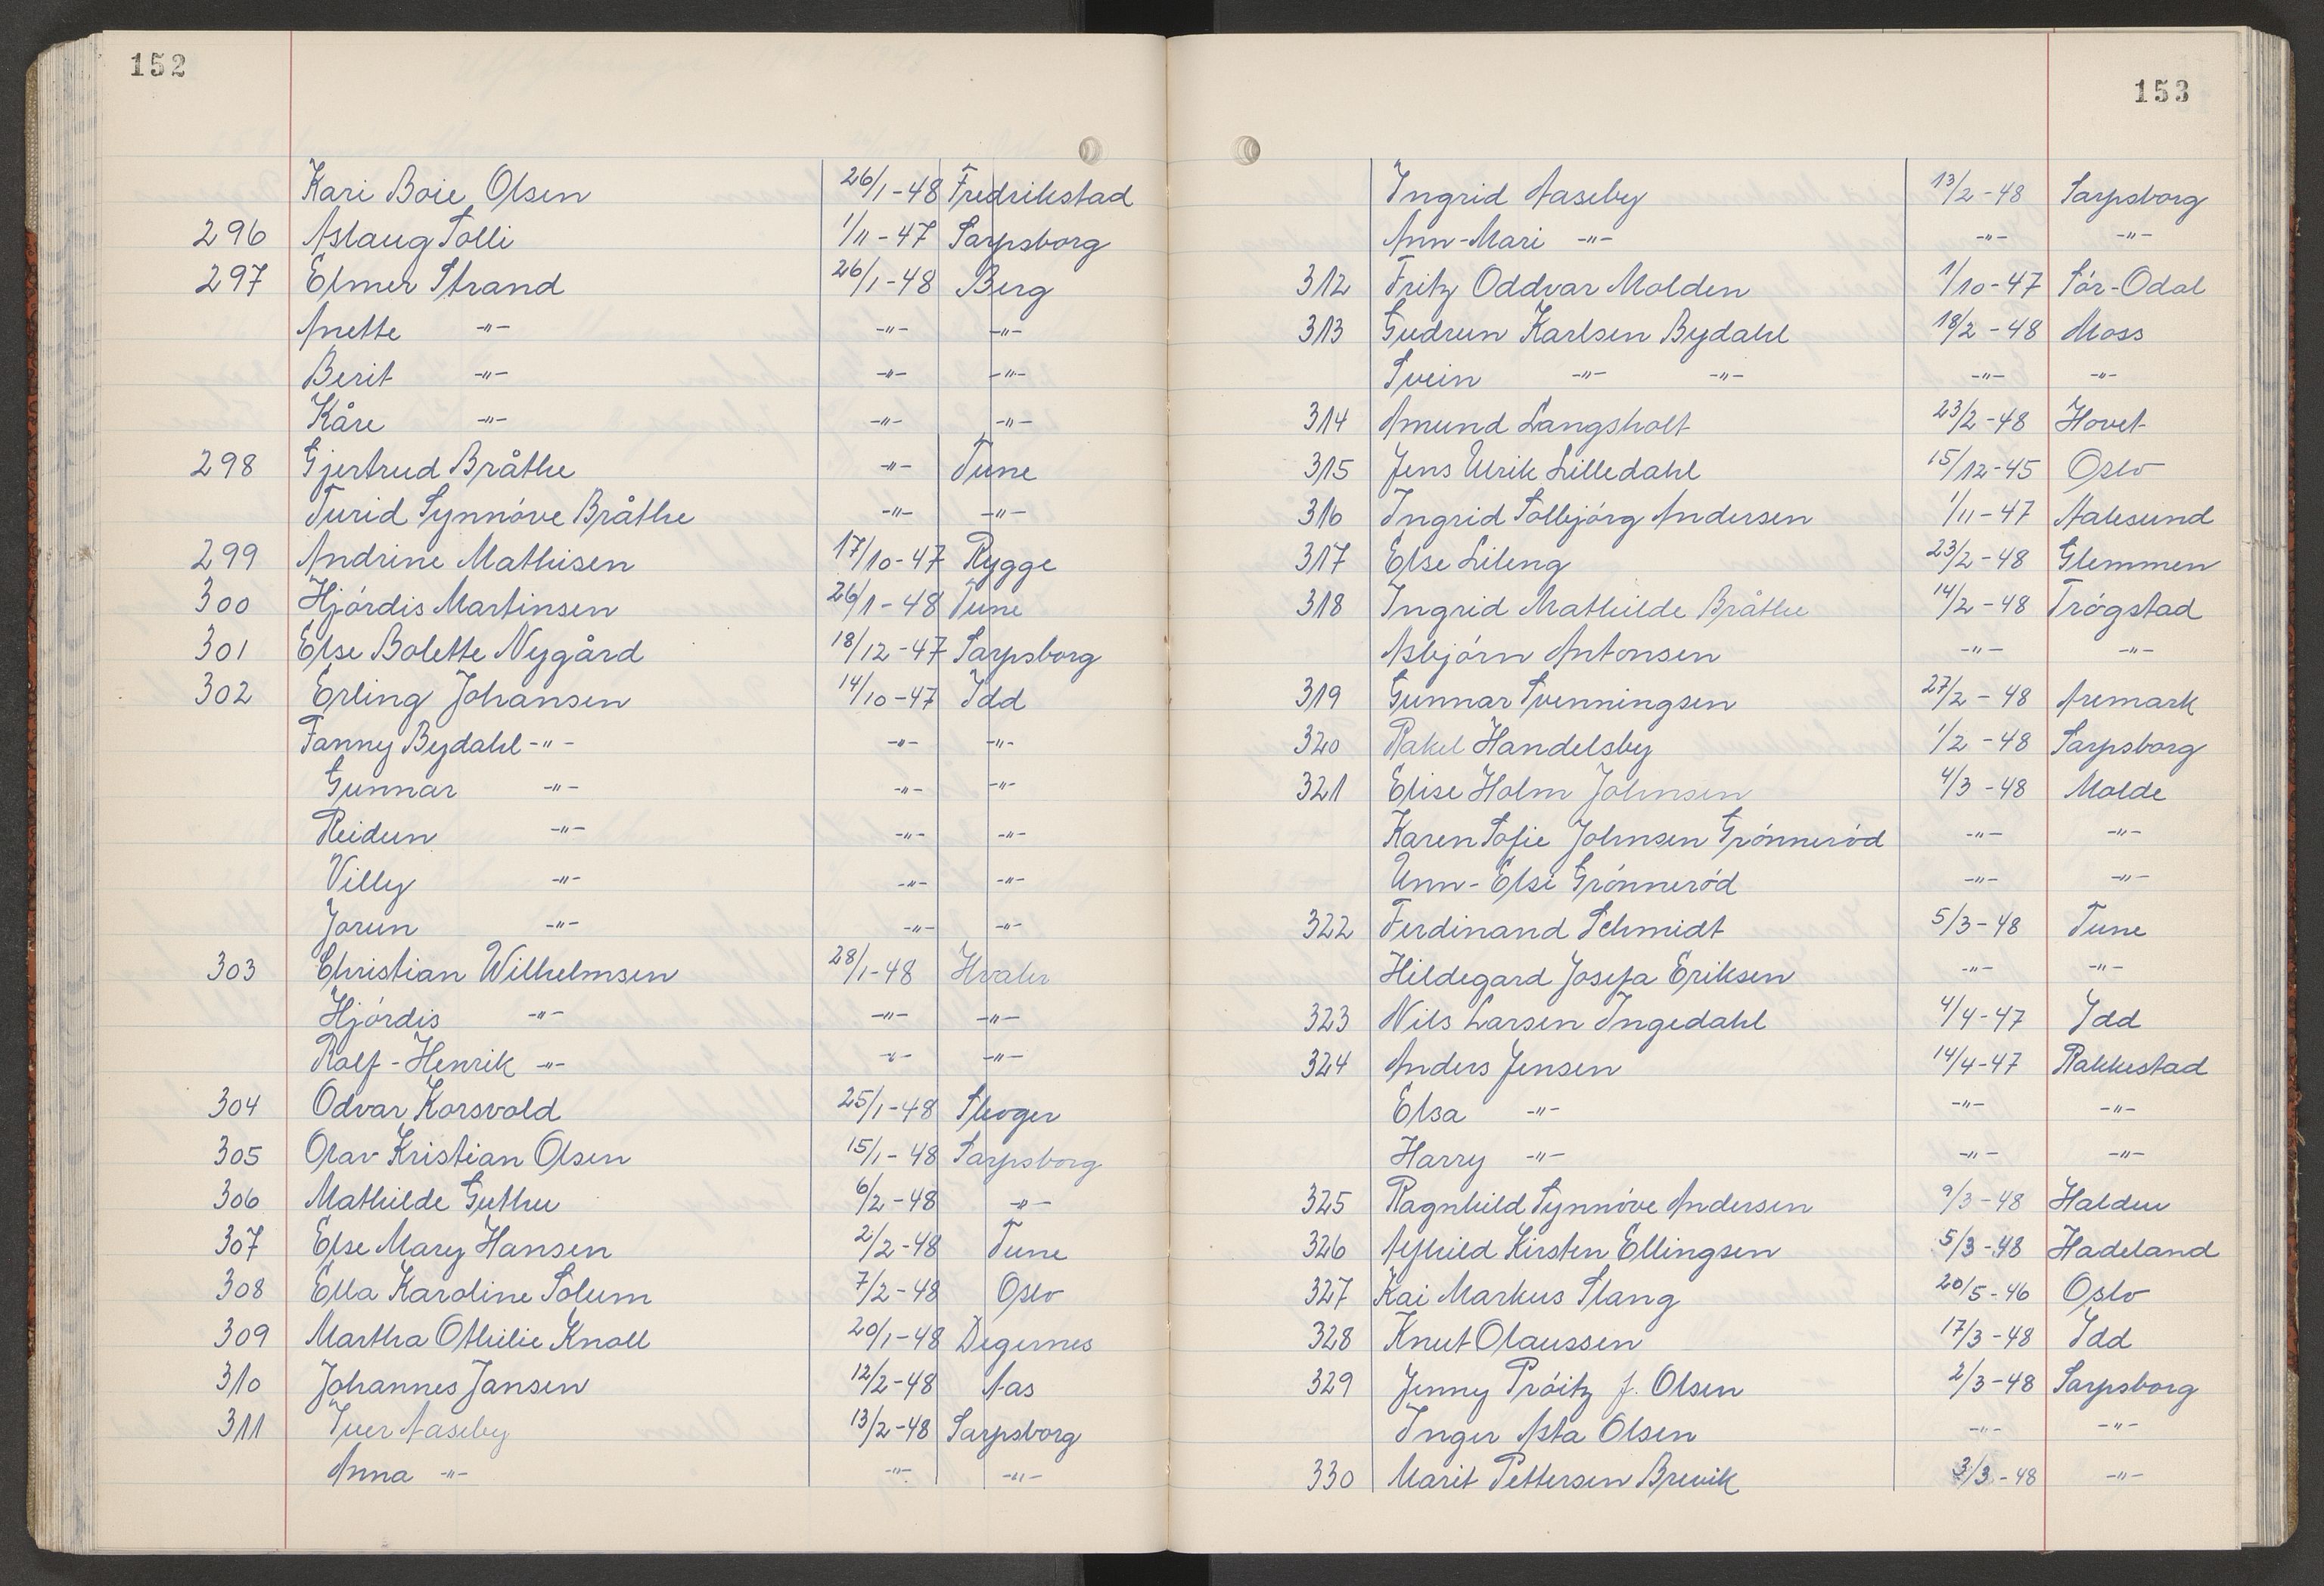 152
Kari Boie Olsen 26/1-48 Fredrikstad
296 Aslaug Tolli 1/11-47 Sarpsborg
297 Elmer Strand 26/1-48 Berg
Anette -"- -"- -"-
Berit -"- -"- -"-
Kåre -"- -"- -"-
298 Gjertrud Bråthe -"- Tune
Turid Synnóve Bråthe -"- -"-
299 Andrine Mathisen 17/10-47 Rygge
300 Hjórdis Martinsen 26/1-48 Tune
301 Else Bolette Nygård 18/12-47 Sarpsborg
302 Erling Johansen 14/10-47 Idd
Fanny Bydahl -"- -"- -"-
Gunnar -"- -"- -"-
Reidun -"- -"- -"-
Villy -"- -"- -"-
Jorun -"- -"- -"-
303 Christian Wilhelmsen 28/1-48 Hvaler
Hjórdis -"- -"- -"-
Rolf-Henrik -"- -"- -"-
304 Odvar Korsvold 25/1-48 Skoger
305 Olav Kristian Olsen 15/1-48 Sarpsborg
306 Mathilde Guthu 6/2-48 -"-
307 Else Mary Hansen 2/2-48 Tune
308 Ella Karoline Solum 7/2-48 Oslo
309 Martha Othilie Knoll 20/1-48 Degernes
310 Johannes Jansen 12/2-48 Aas
311 Iver Aaseby 13/2-48 Sarpsborg
Anna -"- -"- -"-
153
Ingrid Aaseby 13/2-48 Sarpsborg
Ann-Mari -"- -"- -"-
312 Fritz Oddvar Molden 1/10-47 Sór-Odal
313 Gudrun Karlsen Bydahl 18/2-48 Moss
Svein -"- -"- -"- -"-
314 Amund Langsholt 23/2-48 Hovet
315 Jens Ulrik Lilledahl 15/12-45 Oslo
316 Ingrid Solbjórg Andersen 1/11-47 Aalesund
317 Else Lileng 23/2-48 Glemmen
318 Ingrid Mathilde Bråthe 14/2-48 Trógstad
Asbjórn Antonsen -"- -"-
319 Gunnar Svenningsen 27/2-48 Aremark
320 Rakel Handelsby 1/2-48 Sarpsborg
321 Elise Holm Johnsen 4/3-48 Molde
Karen Sofie Johnsen Grónneród -"- -"-
Unn-Else Grónneród -"- -"-
322 Ferdinand Schmidt 5/3-48 Tune
Hildegard Josefa Eriksen -"- -"-
323 Nils Larsen Ingedahl 4/4-47 Idd
324 Anders Jensen 14/4-47 Rakkestad
Elsa -"- -"- -"-
Harry -"- -"- -"-
325 Ragnhild Synnóve Andersen 9/3-48 Halden
326 Alfhild Kirsten Ellingsen 5/3-48 Hadeland
327 Kai Markus Slang 20/5-46 Oslo
328 Knut Olaussen 17/3-48 Idd
329 Jenny Próitz f. Olsen 2/3-48 Sarpsborg
Inger Asta Olsen -"- -"-
330 Marit Pettersen Brevik 3/3-48 -"-